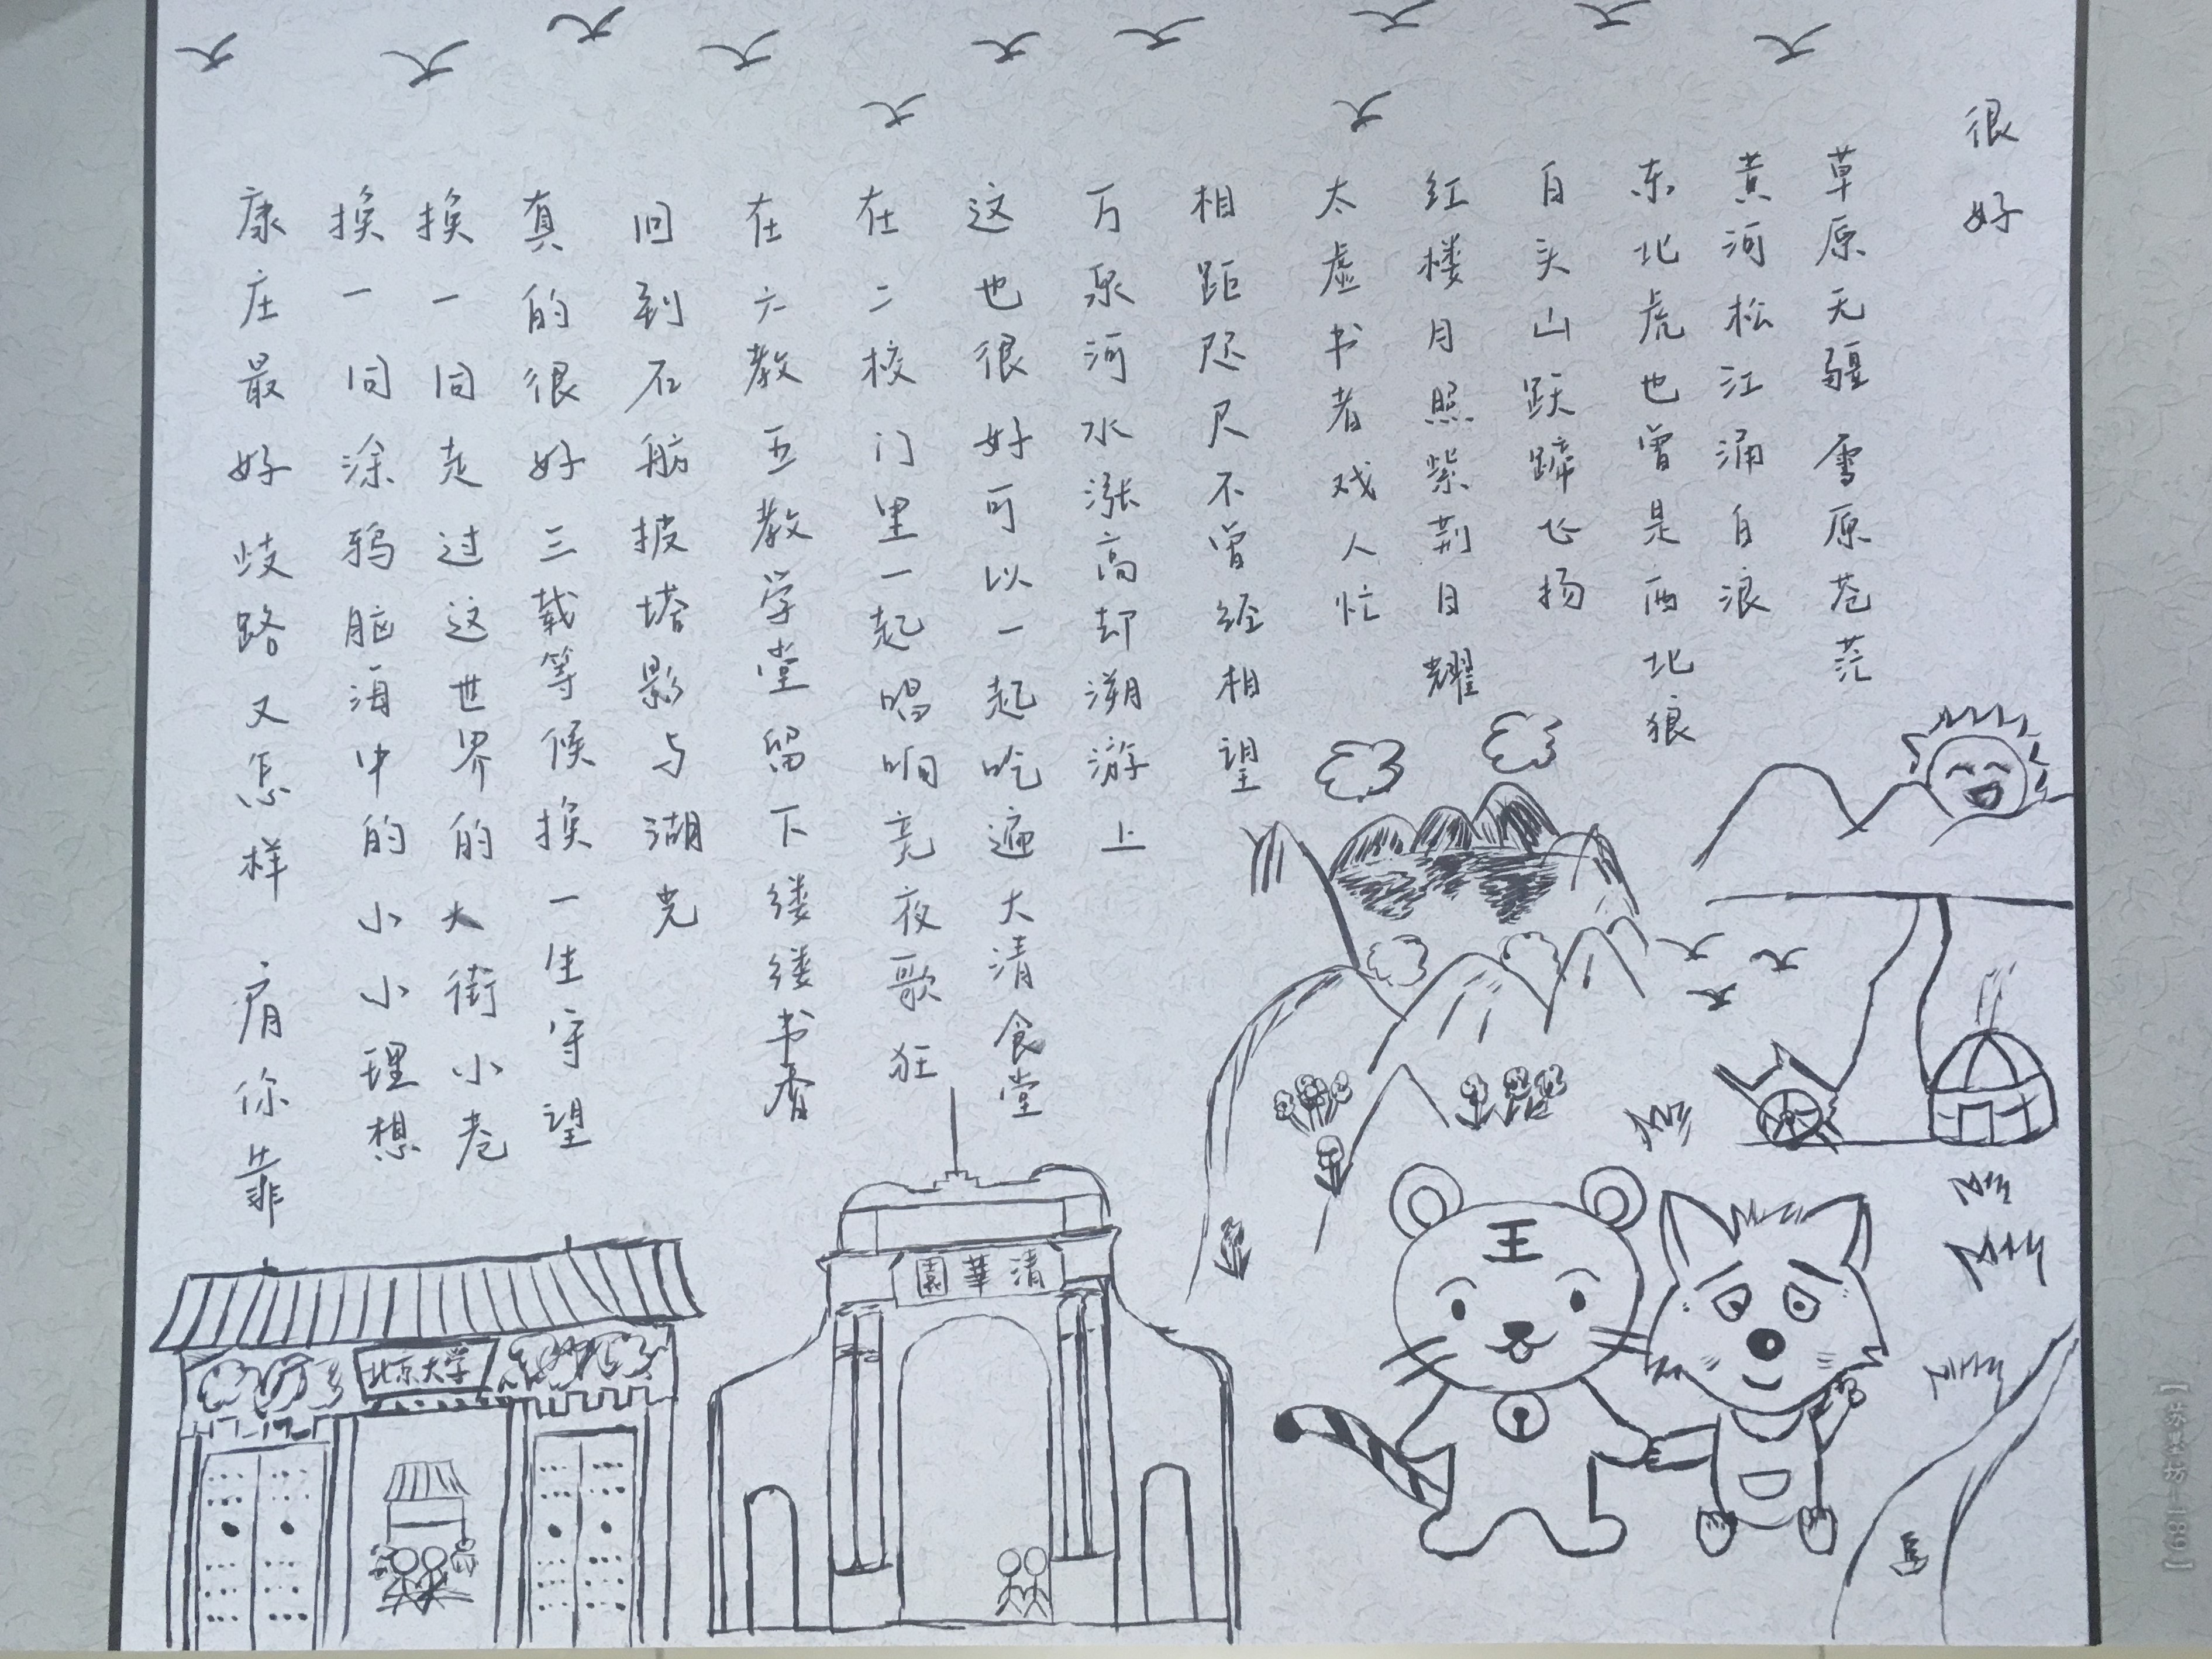 很好
草原无疆 雪原苍茫
黄河松江涌白浪
东北虎也曾是西北狼
白头山跃蹄飞扬
红楼月照紫荆日耀
太虚书者戏人忙
相距咫尺不曾经相望
万泉河水涨高却溯游上
这也很好可以一起吃遍大清食堂
在二校门里一起唱响亮夜歌狂
在六教五教学堂留下缕缕书香
回到石舫披塔影与湖光
真的很好三载等候换一生守望
换一回走过这世界的大街小巷
换一回涂鸦脑海中的小小理想
康庄最好歧路又怎样 肩你靠
王
清華園
北京大学
【苏墨坊-189】